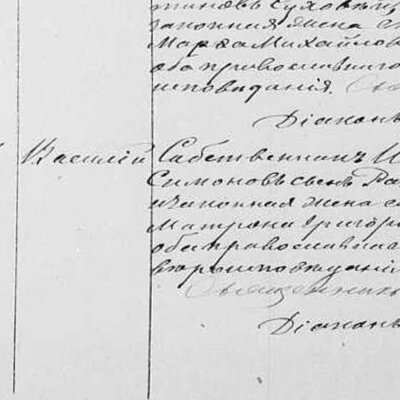 законная жена
Марѳа Михайлов
оба православнаго
исповеданія.
Діаконъ
Василій Собственникъ И
Симоновъ сынъ
и законная жена е
Матрона Григор
оба православнаго
вѣроисповѣданія
Священникъ
Діаконъ